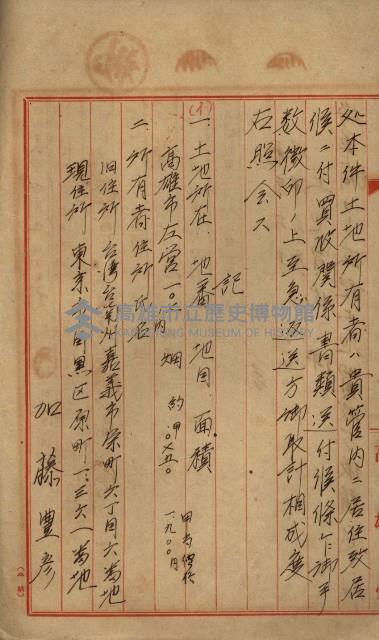 処本件土地所有者ハ貴管内ニ居住致居
候ニ付買收関係書類送付候條乍御手
数徴印ノ上至急返送方御取計相成度
右照会ス
記
(1)
一、土地所在、地番、地目、面積
高雄市左営一〇 内 畑 約甲
甲当價格
一、九〇〇円
二、所有者住所氏名
旧住所 台湾台南州嘉義市栄町六丁目六番地
現住所 東京 目黒区原町一、三六一番地
加藤豊彦
高雄市立歷史博物館
KAOHSIUNG MUSEUM OF HISTORY